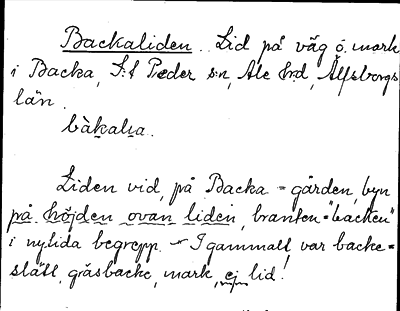 Backaliden. Lid på väg ö. mark
i Backa, S:t Peder s:n, Ale hd, Älfsborgs
län.
bàkalıa.
Liden vid, på Backa=gården, byn
på höjden ovan liden, branten="backen"
i nytida begrepp. - I gammall, var backe=
slätt, gräsbacke, mark, ej lid!